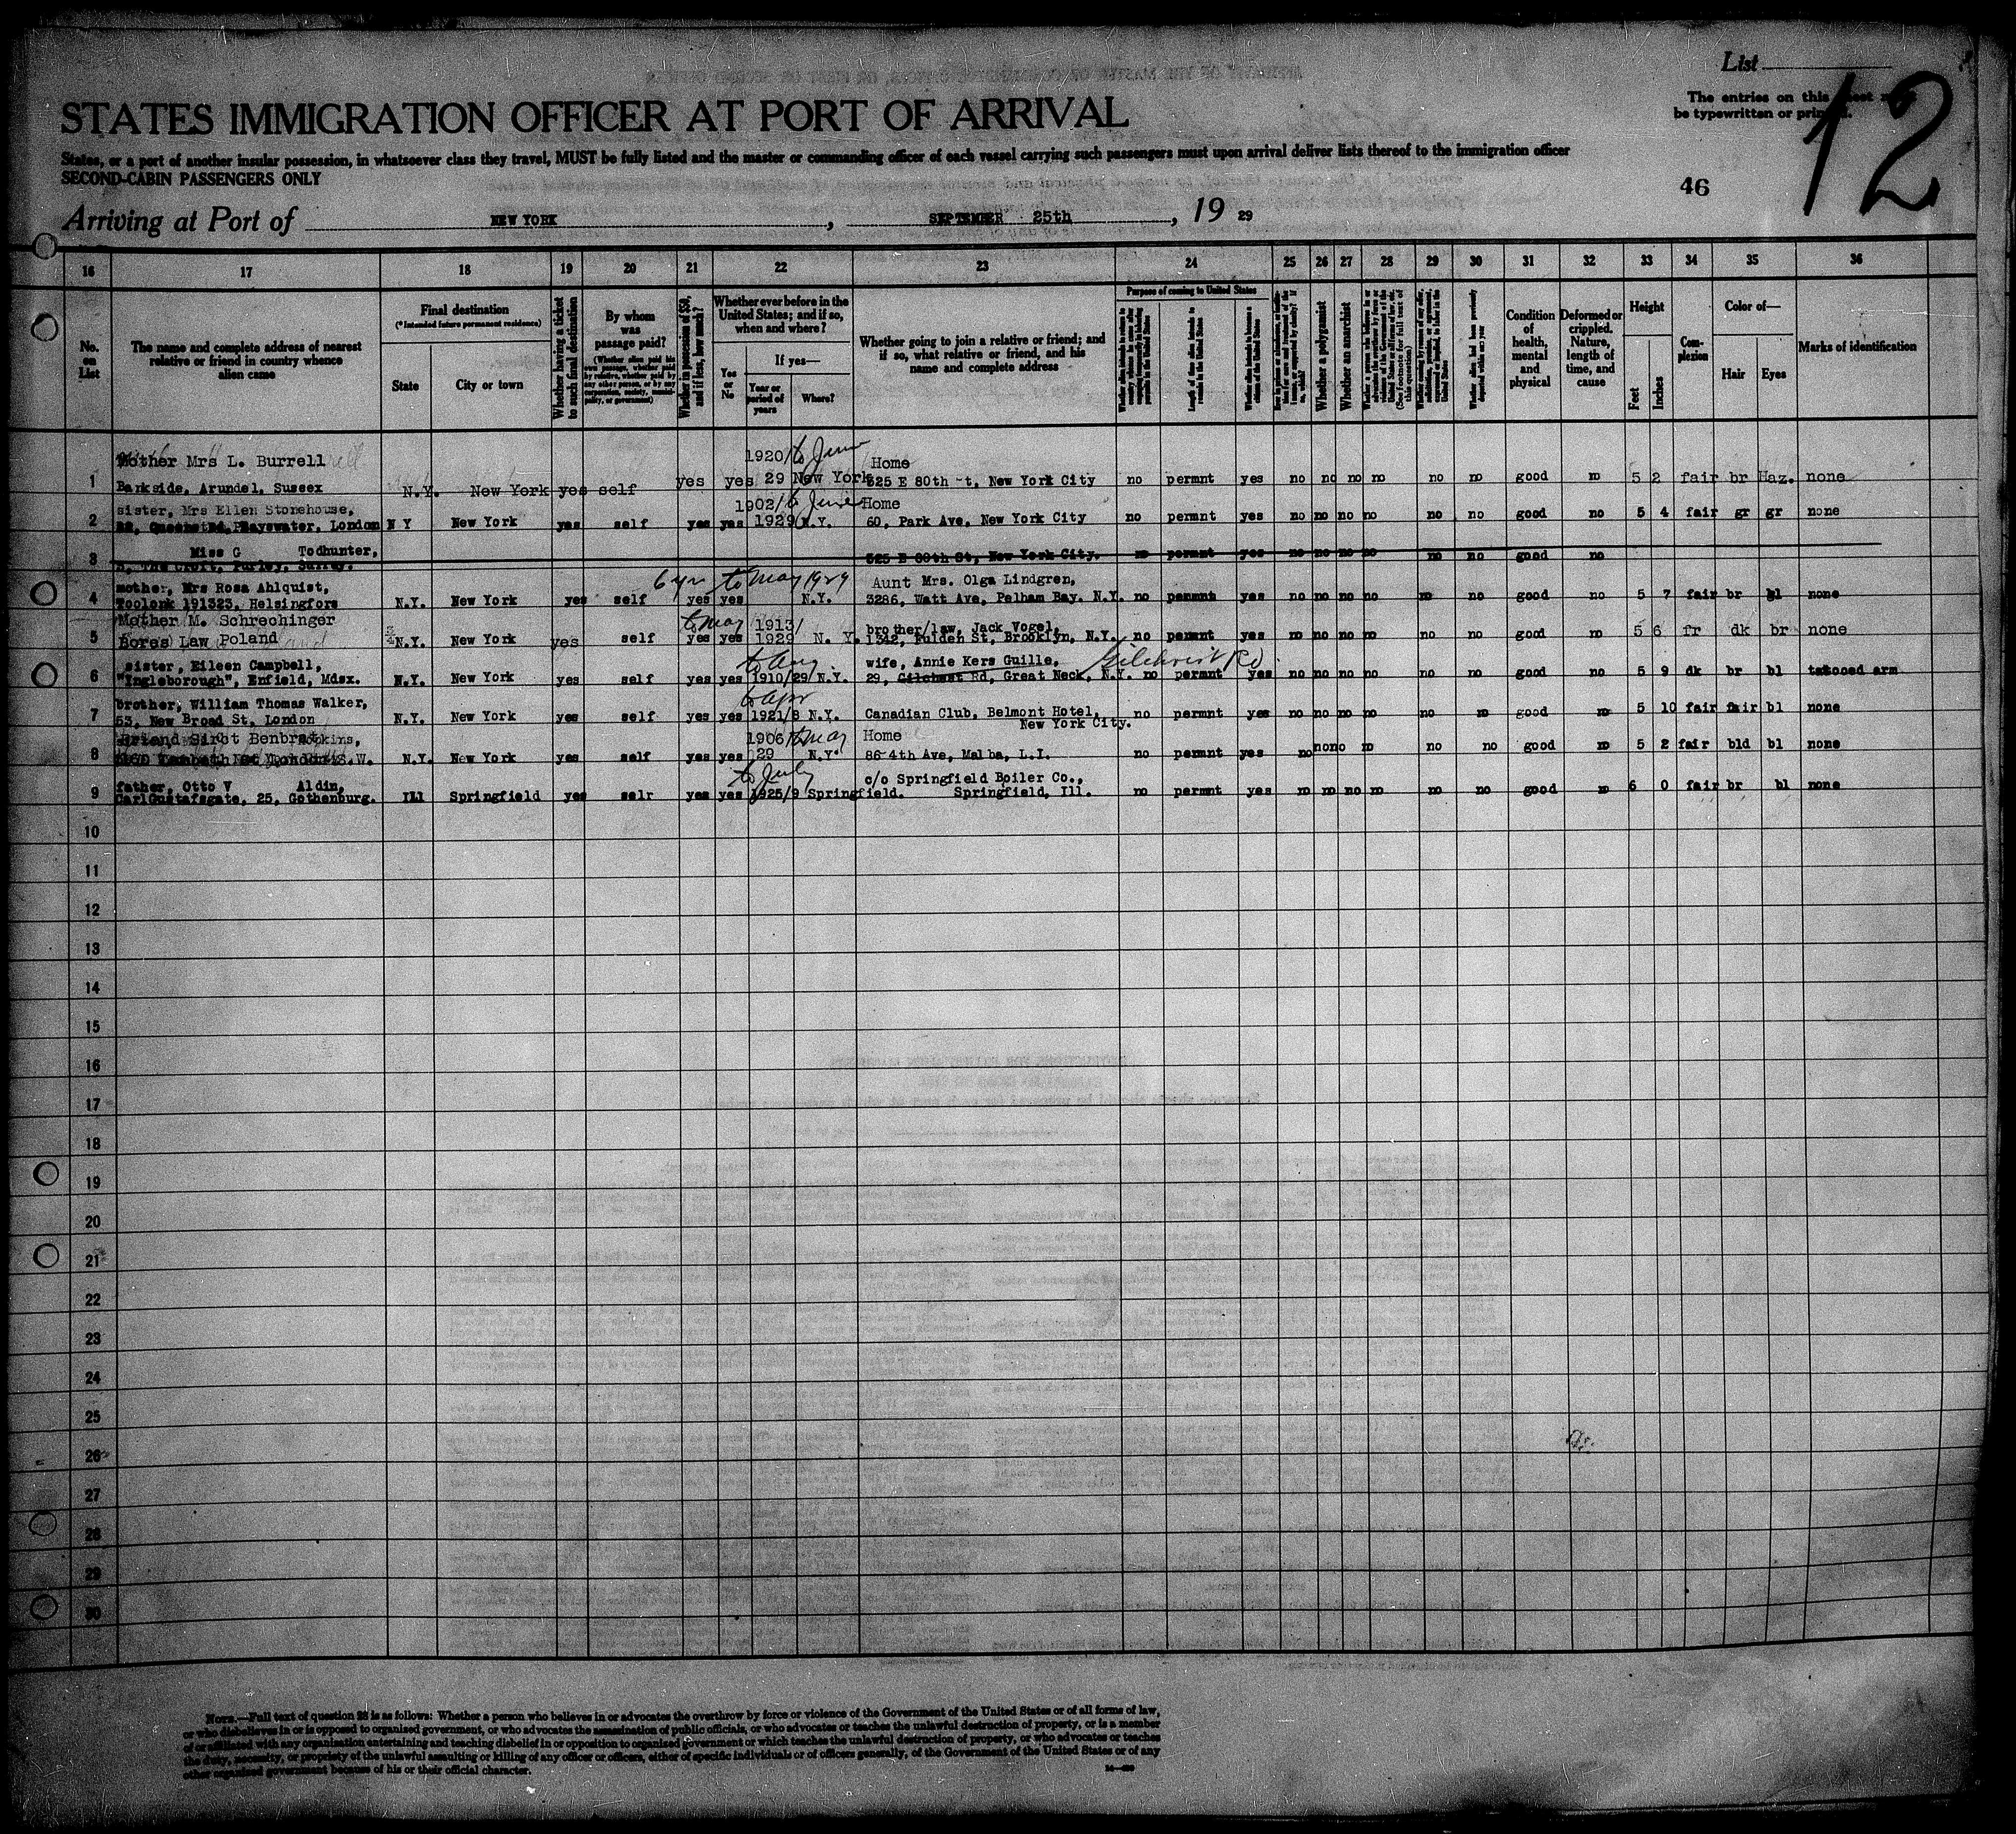 List
12
The entries on this
be typewritten or
STATES IMMIGRATION OFFICER AT PORT OF ARRIVAL
States, or a port of another insular possession, in whatsoever class they travel, MUST be fully listed and the master or commanding officer of each vessel carrying such passengers must upon arrival deliver lists thereof to the immigration officer
SECOND-CABIN PASSENGERS ONLY
46
Arriving at Port of NEW YORK, SEPTEMBER 25th, 19 29
16 17 18 19 20 21 22 23 24 25 26 27 28 29 30 31 32 33 34 35 36
No. on List
The name and complete address of nearest relative or friend in country whence alien came
Final destination
(*Intended future permanent residence)
State
City or town
Whether having a ticket to such final destination
By whom was passage paid?
Whether in possession of $50, and if less, how much?
Whether ever before in the United States; and if so, when and where?
Yes or No
If yes—
Year or period of years
Where?
Whether going to join a relative or friend; and if so, what relative or friend, and his name and complete address
Purpose of coming to United States
Length of time alien intends to remain in the United States
Whether alien intends to become a citizen of the United States
Whether a polygamist
Whether an anarchist
Condition of health, mental and physical
Deformed or crippled. Nature, length of time, and cause
Height
Feet
Inches
Complexion
Color of—
Hair
Eyes
Marks of identification
Mother Mrs L. Burrell 1920/ to June Home
1 Barkside, Arundel, Sussex N.Y. New York yes self yes yes 29 New York 525 E 80th St, New York City no permnt yes no no no no no no good no 5 2 fair br Haz. none
sister, Mrs Ellen Stonehouse, 1902/ to June Home
2 Bayswater, London N Y New York yes self yes yes 1929 N.Y. 60, Park Ave, New York City no permnt yes no no no no no no good no 5 4 fair gr gr none
Miss G Todhunter,
3 5, The Croft, Purley, Surrey. 525 E 80th St, New York City. no permnt yes no no no no no no good no
mother, Mrs Rosa Ahlquist, 6 yrs to May 1929 Aunt Mrs. Olga Lindgren,
4 Toolonk 191323, Helsingfors N.Y. New York yes self yes yes N.Y. 3286, Watt Ave, Pelham Bay. N.Y. no permnt yes no no no no no no good no 5 7 fair br bl none
Mother M. Schrechinger to May 1913/ brother/law, Jack Vogel,
5 Bores Law Poland N.Y. New York yes self yes yes 1929 N. Y. 1342, Fulden St, Brooklyn, N.Y. no permnt yes no no no no no no good no 5 6 fr dk br none
sister, Eileen Campbell, to Aug. wife, Annie Kers Guille, Gilchrist Rd.
6 "Ingleborough", Enfield, Mdsx. N.Y. New York yes self yes yes 1910/29/N.Y. 29, Gilchest Rd, Great Neck, N.Y. no permnt yes no no no no no no good no 5 9 dk br bl tattooed arm
brother, William Thomas Walker, to Apr
7 53, New Broad St, London N.Y. New York yes self yes yes 1921/8 N.Y. Canadian Club, Belmont Hotel, New York City. no permnt yes no no no no no no good no 5 10 fair fair bl none
1906 to May Home
8 N.Y. New York yes self yes yes 29 N.Y. 86-4th Ave, Malba, L.I. no permnt yes no no no no no no good no 5 2 fair bld bl none
father, Otto V Aldin, to July c/o Springfield Boiler Co.,
9 CarlGustafsgate, 25, Gothenburg. Ill Springfield yes self yes yes 1925/9 Springfield. Springfield, Ill. no permnt yes no no no no no no good no 6 0 fair br bl none
10
11
12
13
14
15
16
17
18
19
20
21
22
23
24
25
26
27
28
29
30
NOTE.—Full text of question 28 is as follows: Whether a person who believes in or advocates the overthrow by force or violence of the Government of the United States or of all forms of law,
or who disbelieves in or is opposed to organized government, or who advocates the assassination of public officials, or who advocates or teaches the unlawful destruction of property, or is a member
of or affiliated with any organization entertaining and teaching disbelief in or opposition to organized government or which teaches the unlawful destruction of property, or who advocates or teaches
the duty, necessity, or propriety of the unlawful assaulting or killing of any officer or officers, either of specific individuals or of officers generally, of the Government of the United States or of any
other organized government because of his or their official character.